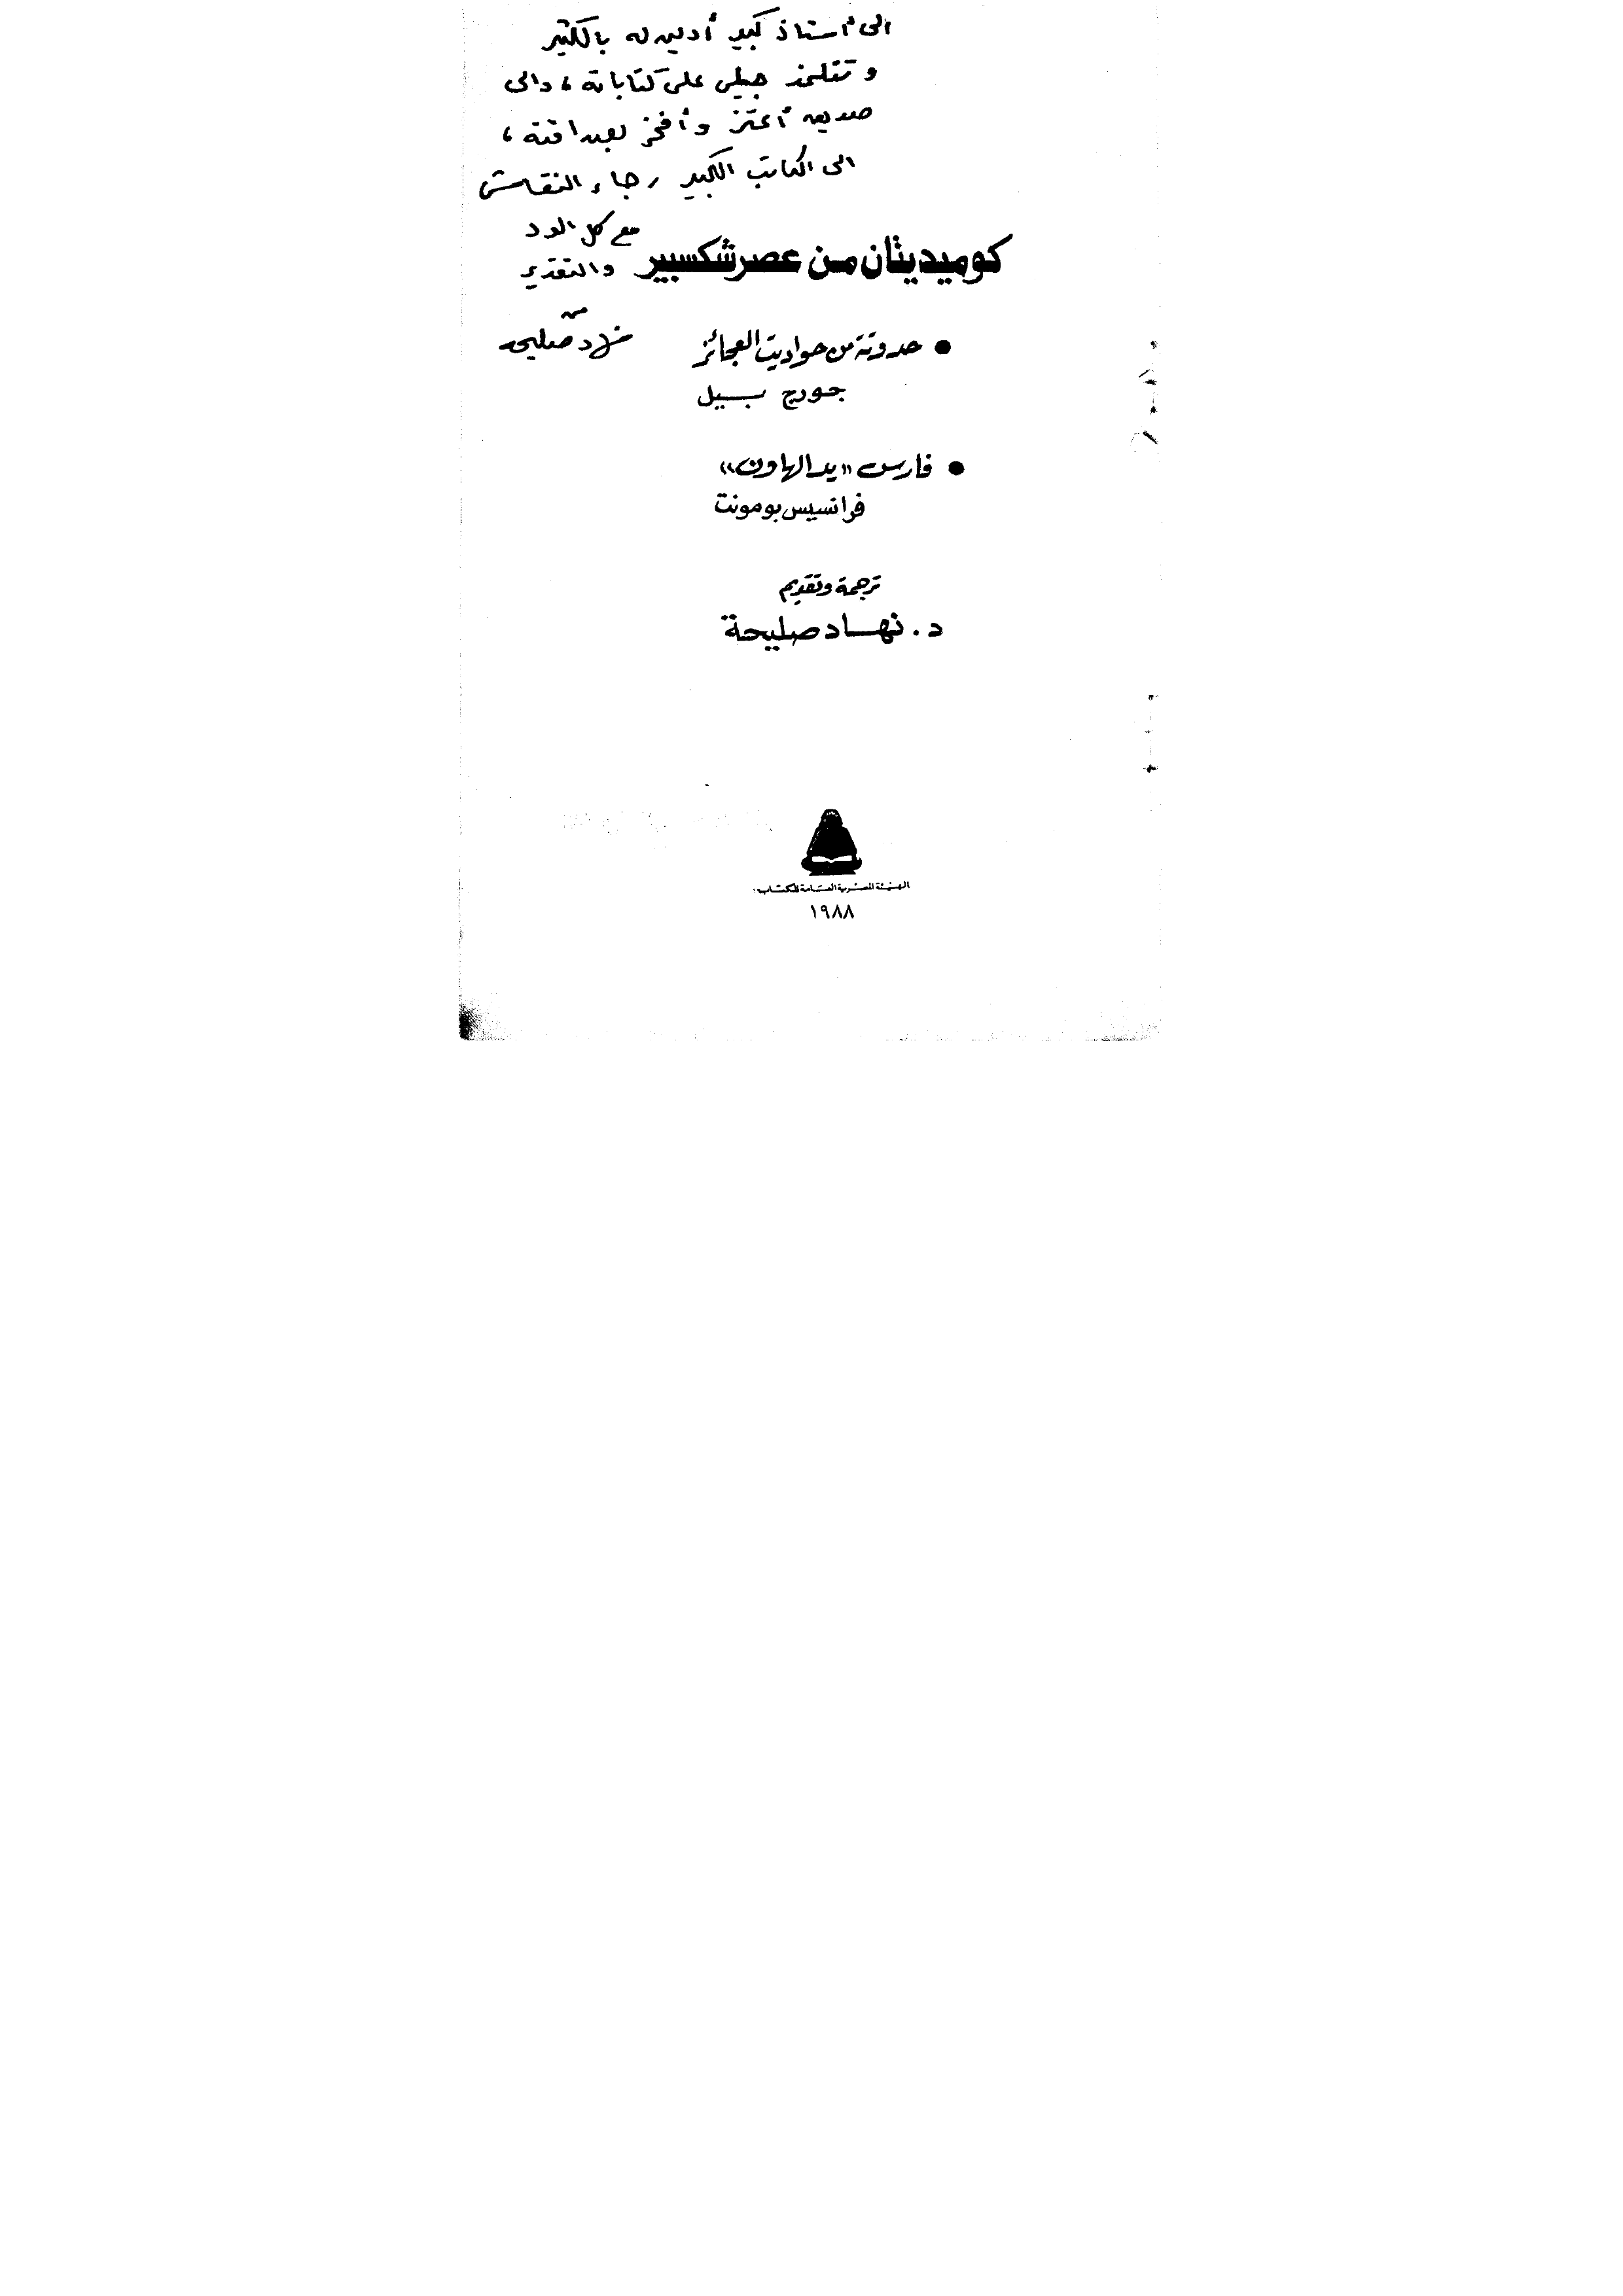 الى أستاذ كبير أدين له بالكثير
و تتلمذ جيلى على كتاباته ، والى
صديق أعتز و أفخر بصداقته ،
الى الكاتب الكبير رجاء النقاش
مع كل الود
والتقدير
من
نهاد صليحه
كوميديتان من عصر شكسبير
● حدوتة من حواديت العجائز
جورج بيل
● فارس «يد الهاون»
فرانسيس بومونت
ترجمة وتقديم
د. نهاد صليحة
الهيئة المصرية العامة للكتاب
١٩٨٨